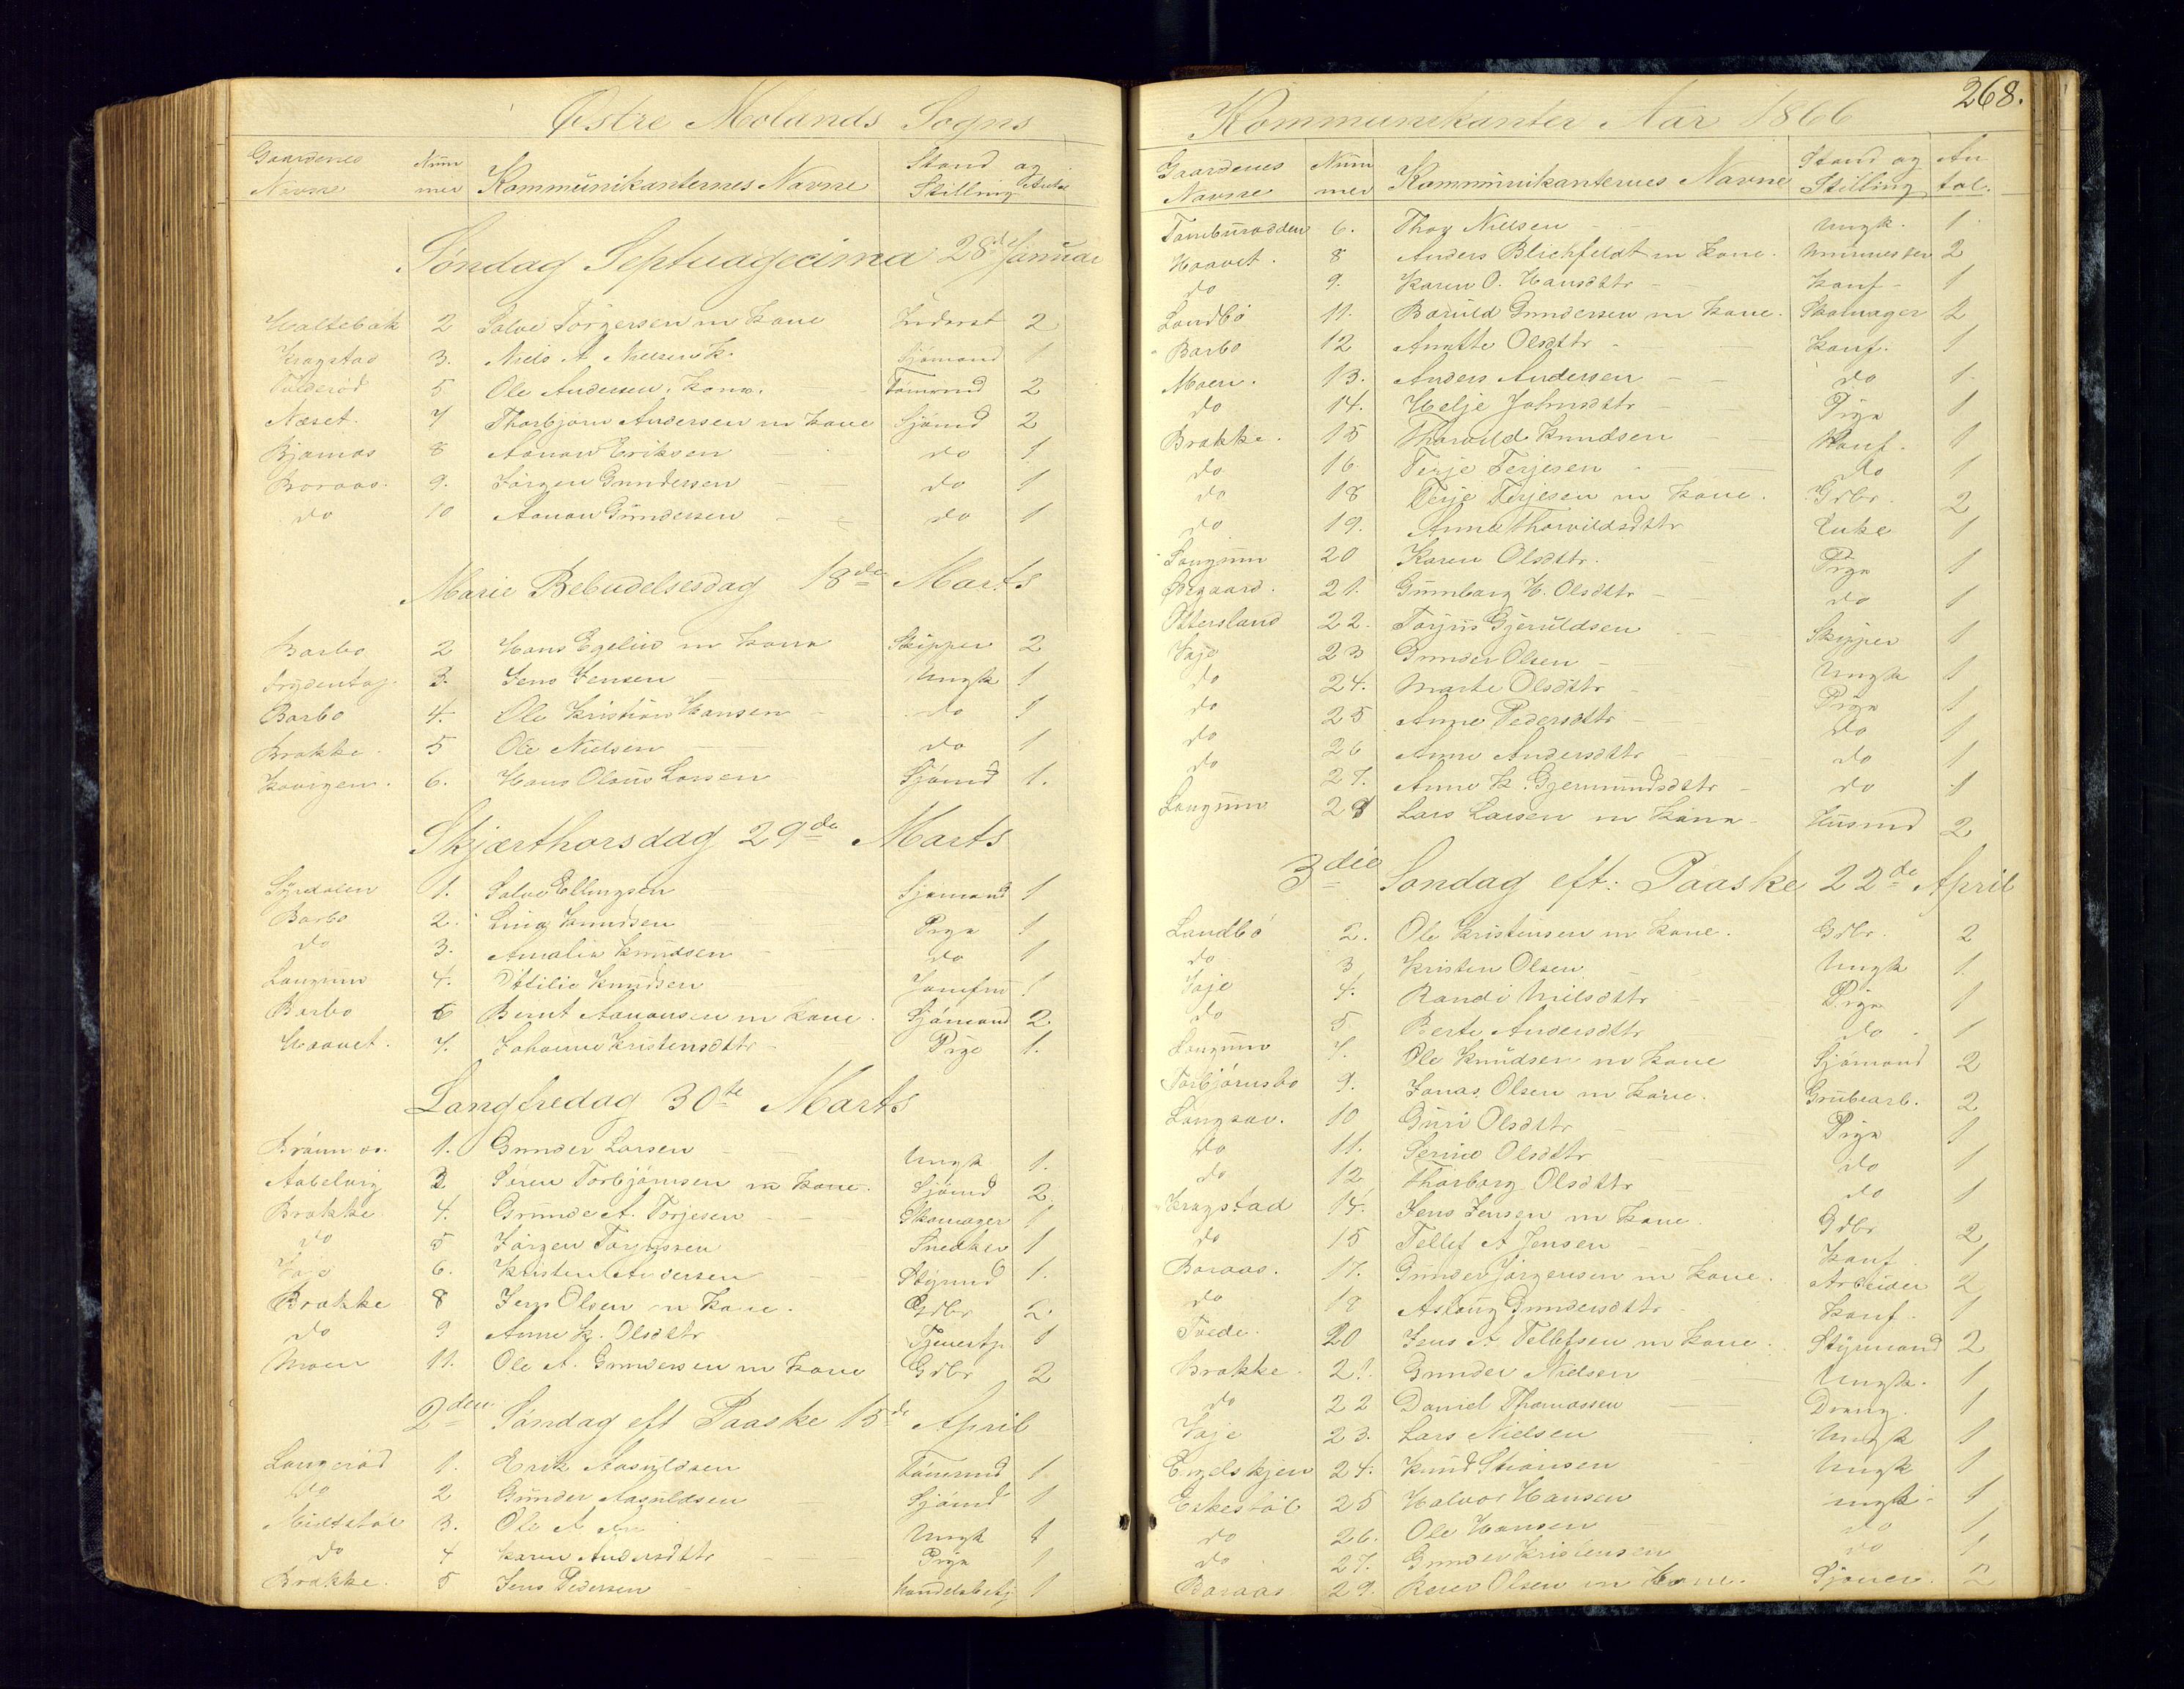 Østre Molands Sogns
Gaardenes Navne Nummer Kommunikanternes Navne Stand og Stilling Antal
Søndag Septuagecima 28de Januar
2 Salve Torgersen m Kone Inderst 2
Kragstad 3. Niels A Nielsen K. Sjømand 1
5 Ole Andersen, Kone. Tømmd 2
Næset. 7 Thorbjørn Andersen m Kone Sjømd 2
Bjornaas 8 Aanon Eriksen do 1
Boraas. 9. Jørgen Gundersen do 1
do 10 Aanon Gundersen do 1
Marie Bebudelsesdag 18de Marts
Barbo 2 Hans Egelius m Kone Skipper 2
3. Jens Jensen Ungk 1
Barbo 4. Ole Kristian Hansen do 1
Brakke. 5 Ole Nielsen do 1
6. Hans Olaus Larsen Sjømd 1.
Skjærthorsdag 29de Marts
Syrdalen 1. Salve Ellingsen Sjømand 1
Barbo 2. Lina Knudsen Pige 1
do 3. Amalia Knudsen do 1
Langum 4. Ottilie Knudsen Jomfru 1
Barbo 6 Bernt Aanonsen m Kone. Sjømand 2.
Haavet. 7. Johanne Kristensdttr Pige 1.
Langfredag 30te Marts
1. Gunder Larsen Ungk 1.
Aabelvig 3 Søren Torbjørnsen m Kone. Sjømd 2.
Brakke. 4. Grunde A. Torjesen Skomager 1
do 5 Jørgen Torjussen Snedker 1
Vaje 6. Kristen Andersen Stÿrmd 1.
Brakke 8 Jens Olsen m Kone. Gdbr 2.
do 9 Anne K. Olsdttr Tjenestp 1
Moen 11. Ole A. Gundersen m Kone Gdbr 2
2den Søndag eft Paaske 15de April
Langerød 1. Erik Aasuldsen Tømmd 1
do 2 Gunder Aasuldsen Sjømd 1
Midtstøl 3. Ole A Ungk 1
do 4 Karen Andersdttr Pige 1
Brakke. 5 Jens Pedersen Handelsbetj 1
268.
Kommunikanter Aar 1866
Gaardenes Navne Nummer Kommunikanternes Navne Stand og Stilling Antal.
6. Thor Nielsen Ungk. 1
Haavet. 8 Anders Blichfeldt m Kone. Murmester 2
do 9. Karen O. Hansdttr Konf 1
Landbø 11. Baruld Gundersen m Kone. Skomager 2
Barbo 12 Anette Olsdttr Konf. 1
Moen. 13. Anders Andersen do 1.
do 14. Helje Johnsdttr Pige 1
Brakke. 15 Thorvild Knudsen Konf. 1
do 16. Terje Terjesen do 1
do 18 Terje Terjesen m Kone. Gdbr. 2
do 19. Anne Thorvildsdttr Enke 1
Langum 20 Karen Olsdttr. Pige 1
21. Gunborg H. Olsdttr do 1
Ottersland 22. Torjus Gjeruldsen Skipper 1
Vaje 23 Gunder Olsen Ungk 1
do 24. Marte Olsdttr Pige 1
do 25 Anne Pedersdttr do 1
do 26 Anne Andersdttr do 1
do 27. Anne K. Gjermundsdttr do 1
Langum 28 Lars Larsen m Kone Husmd 2
3die Søndag eft: Paaske 22de April
Landbø 2. Ole Kristensen m Kone. Gdbr. 2
do 3 Kristen Olsen Ungk 1.
Vaje 4. Randi Nielsdttr Pige 1
do 5 Berte Andersdttr do 1
Langum 7. Ole Knudsen m Kone Sjømand 2
Torbjørnsbo 9. Jonas Olsen m Kone. Grubearb. 2
Langsav. 10 Guri Olsdttr Pige 1
do 11. Serine Olsdttr do 1
do 12 Thorborg Olsdttr do 1
Kragstad 14. Jens Jensen m Kone. Gdbr 2
do 15 Tellef A Jensen Konf 1
Boraas. 17. Gunder Jørgensen m Kone. Arbeider 2
do 18 Aslaug Gundersdttr Konf. 1
Tvede. 20 Jens A Tellefsen m Kone. Stÿrmand 2
Brakke. 21. Gunder Nielsen Ungk. 1
do 22 Daniel Thomassen Dreng. 1
Vaje 23. Lars Nielsen Ungk 1
Engelskjen 24. Knud Stiansen Ungk 1
Eskestøl 25 Halvor Hansen ungk 1
do 26. Ole Hansen do 1
do 27. Gunder Kristensen do 1
Boraas 29. Olsen m Kone. 2